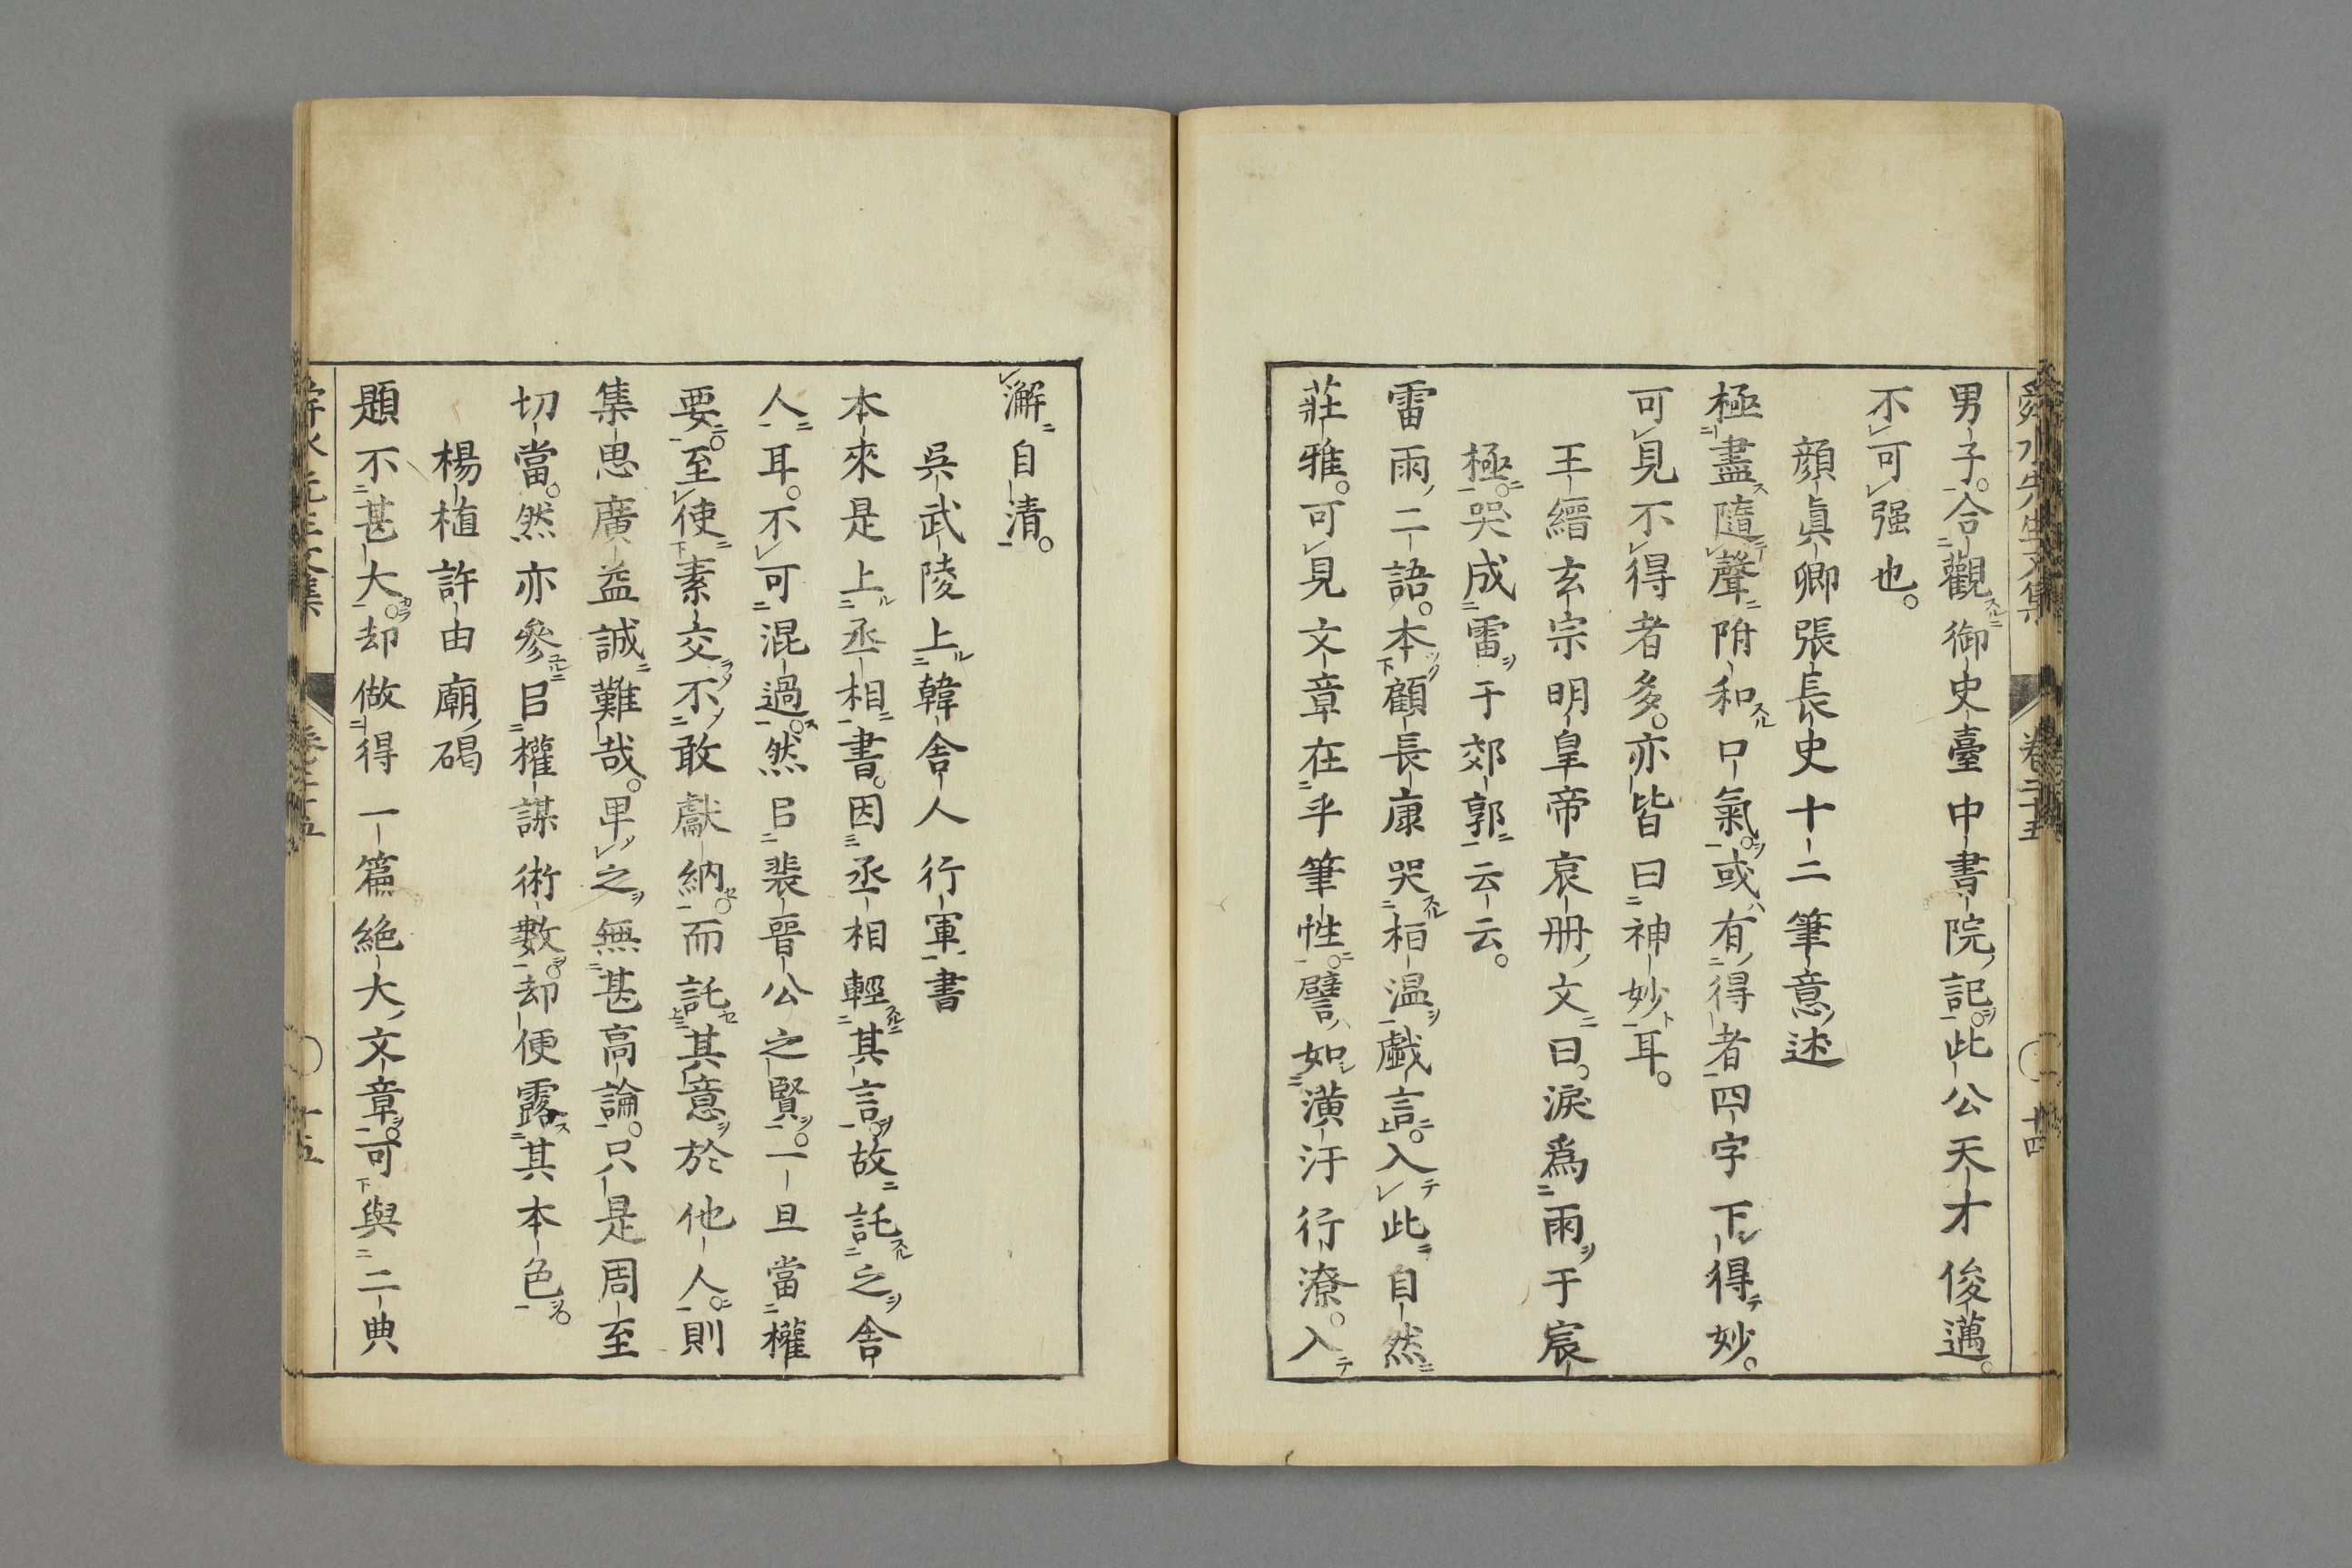 舜水先生文集 卷二十五 十四
男子。合觀御史臺中書院記。此公天才俊邁。
不可强也。
顔眞卿張長史十二筆意述
極盡隨聲附和口氣。或有得者四字下得妙。
可見不得者多。亦皆曰神妙耳。
王縉玄宗明皇帝哀册文曰。淚爲雨于宸
極。哭成雷于郊郭云云。
雷雨二語。本顧長康哭桓温戯言。入此自然
莊雅。可見文章在乎筆性。譬如潢汙行潦。入
澥自清。
吳武陵上韓舍人行軍書
本來是上丞相書。因丞相輕其言。故託之舍
人耳。不可混過。然㠯裴晉公之賢。一旦當權
要。至使素交不敢獻納。而託其意於他人。則
集思廣益誠難哉。卑之無甚高論。只是周至
切當。然亦參㠯權謀術數。却便露其本色。
楊植許由廟碣
題不甚大。却做得一篇絶大文章。可與二典
舜水先生文集 卷二十五 十五